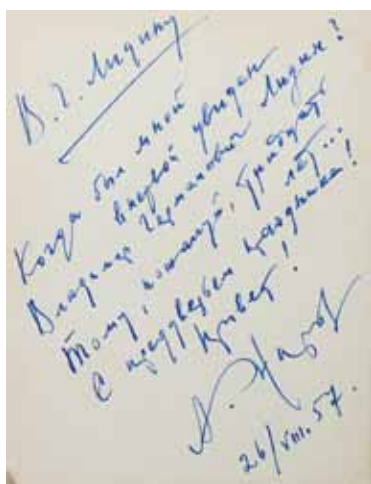 В. Г. Лидину
Когда был мной
впервой увиден
Владимир Германович Лидин?
Тому, пожалуй, тридцать
лет...
С преддверьем праздника!
Привет!
А.
26/VIII.57.